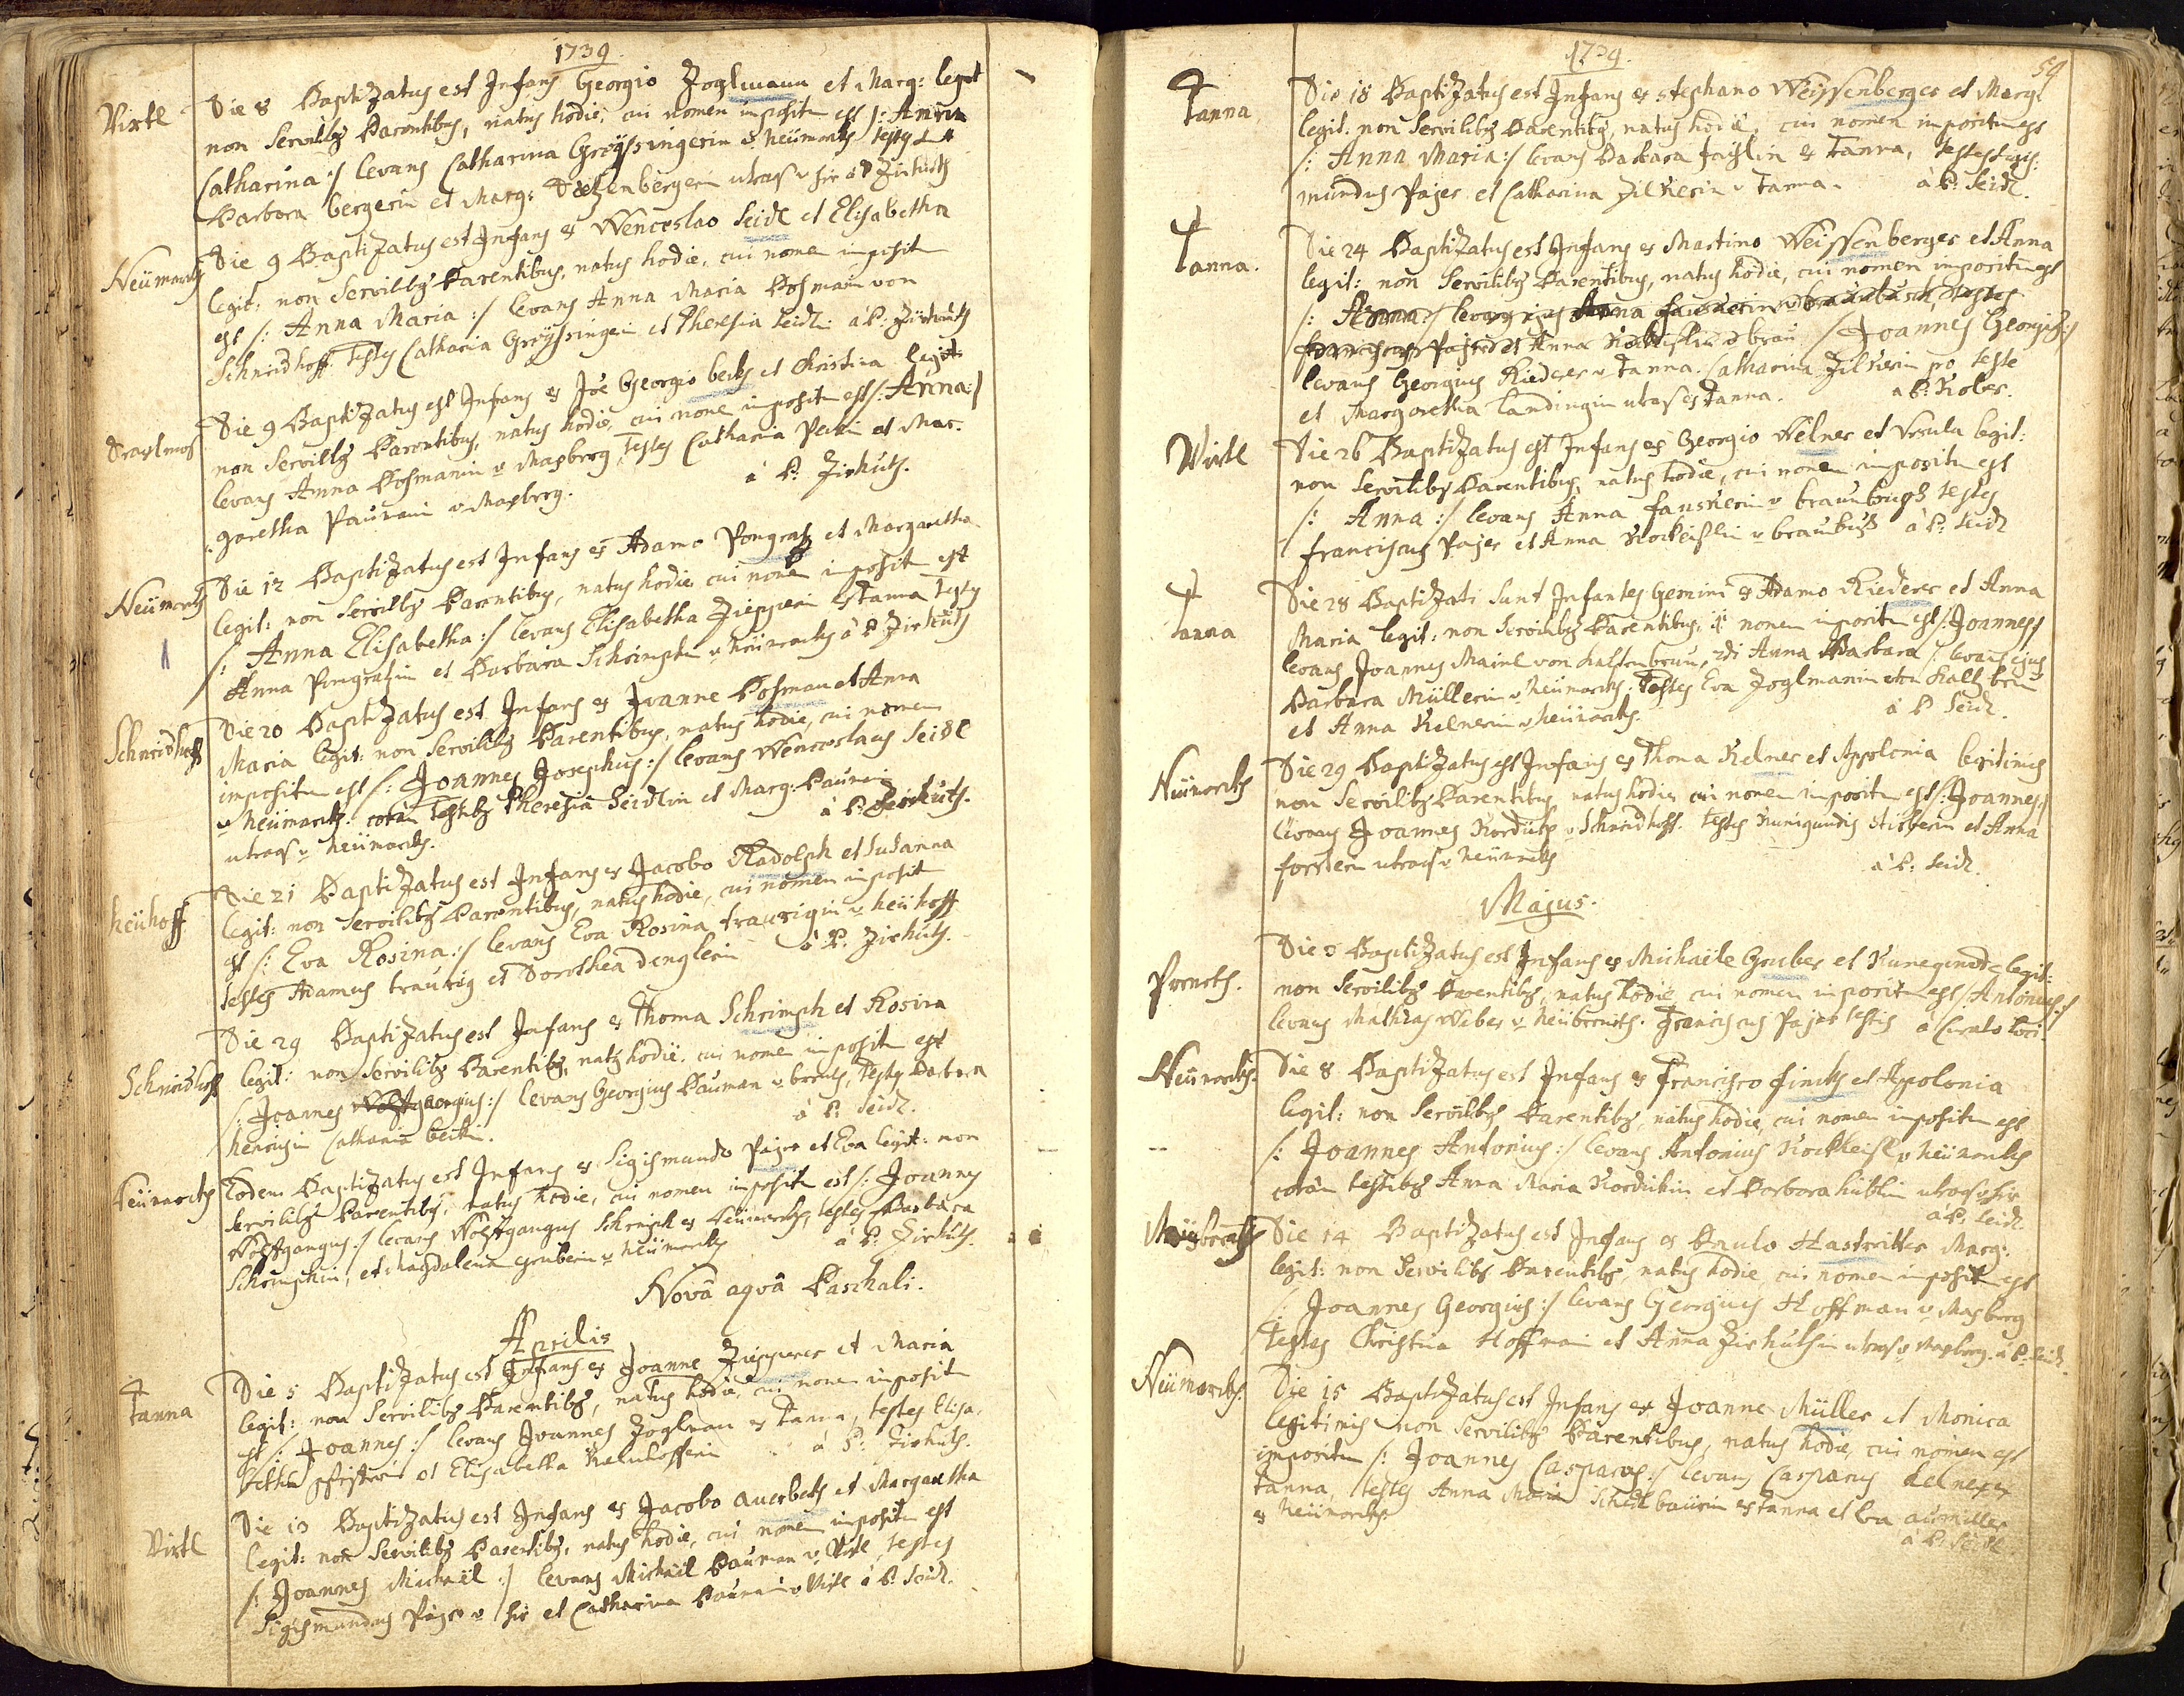 1739
Virtl
Die 8 Baptizatus est Infans Georgio Zoglmann et Marg: legit
non Servilibg Parentibus, natus hodie, cui nomen imposit est /: Anna
Catharina :/ levans Catharina Greyssingerin v. Neümarckh testes
Barbara bergerin et Marg: utrasq v hir à P Zirkuth
Neümarckh
Die 9 Baptizatus est Infans ex Wenceslao Seidl et Elisabetha
legit: non Servilibg Parentibus, natus hodie, cui nomen imposit
est /: Anna Maria :/ levans Anna Maria Hofmanin von
Schneidhoff. testes Catharia Greyssingerin et Theresia Seidlin à P: Zirkuth
Die 9 Baptizatus est Infans ex Joe Georgio beckh et Christina legit:
non Servilibg Parentibus, natus hodie, cui nome imposit est /: Anna :/
levans Anna Hofmanin v Mayberg, testes Catharia et Mar-
garetha Paurin v Mayberg. à P: Zirkuth.
Neümarckh
Die 12 Baptizatus est Infans ex Adamo Pongratz et Margaretha
legit: non Servilibg Parentibus, natus hodie cui nomen imposit est
/: Anna Elisabetha :/ levans Elisabetha Ziepperin ex Tanna testes
Anna Pongratzin et Barbara Schrimpfin v Neümarckh à P Zirkuth
Schneidhoff
Die 20 Baptizatus est Infans ex Joanne Hofman et Anna
Maria legit: non Servilibg Parentibus, natus hodie, cui nomen
impositu est /: Joannes Josephus :/ levans Wenceslaus Seidl
v Neümarckh. coram testibg Theresia Seidlin et Marg: Paurin
utrasq v Neümarckh. à P: Zirkuth.
Neühoff
Die 21 Baptizatus est Infans ex Jacobo Radolph et Susanna
legit: non Servilibg Parentibus, natus hodie, cui nomen imposit
est /: Eva Rosina :/ levans Eva Rosina traurigin v Neühoff
testes Adamus traurig et Dorothea denglerin à P. Zirkuth.
Schneidhoff
Die 29 Baptizatus est Infans ex Thoma Schrimph et Rosina
legit: non Servilibg Parentibg, natg hodie, cui nomen imposit est
/: Joannes georgius :/ levans Georgius Pauman v, testes Barbara
Catharia beckin. à P: Seidl.
Neümarckh
Eodem Baptizatus est Infans ex Sigismundo Pajer et Eva legit: non
Servilibg Parentibg, natus hodie, cui nomen imposit est /: Joannes
Wolfgangus :/ levans Wolfgangus Schrimph ex Neümarckh, testes Barbara
Schrimphin, et Magdalena gruberin v Neümarckh à P: Zirkuth.
Novâ aquâ Paschali.
Aprilis
Tanna
Die 5 Baptizatus est Infans ex Joanne Ziepperer et Maria
legit: non Servilibg Parentibg, natus hodie, cui nomen imposit
est /: Joannes :/ levans Joannes Zoglman ex Tanna, testes Elisa-
betha et Elisabetha à P: Zirkuth.
Virtl
Die 13 Baptizatus est Infans ex Jacobo auerbeckh et Margaretha
legit: non Servilibg Parentibg, natus hodie, cui nomen impositu est
/: Joannes Michaël :/ levans Michaël Pauman v Virtl, testes
Sigismundus Pajer v hir et Catharina Paurin v Virtl à P: Seidl.
1739.
59
Tanna
Die 18 Baptizatus est Infans ex stephano Weissenberger et Marg:
legit: non Servilibg Parentibg, natus hodie, cui nomen impositu est
/: Anna Maria :/ levans Barbara ex Tanna, testes Sigis:
mundus Pajer et Catharina Zilkerin v Tanna. à P: Seidl.
Tanna.
Die 24 Baptizatus est Infans ex Martino Weissenberger et Anna
legit: non Servilibg Parentibus, natus hodie, cui nomen impositu est
/: Anna :/ levans Anna
Franciscus Pajer et Anna /: Joannes Georgig :/
levans Georgius Riederer v Tanna. Catharina Zilkerin pro teste
et Margaretha Landingin utrasq ex Tanna. à P: Kober.
Virtl
Die 26 Baptizatus est Infans ex Georgio Welner et Ursula legit:
non Servilibg Parentibus, natus hodie, cui nomen impositu est
/: Anna :/ levans Anna v braunbusch testes
Franciscus Pajer et Anna v braunbusch à P: Seidl
Tanna
Die 28 Baptizati sunt Infantes Gemini ex Adamo Riederer et Anna
Maria legit: non Servilibg Parentibus, nomen impositu est /: Joannes /
levans Joannes Mainl von kaltenbrun, 2di Anna Barbara /: levans ejus
Barbara Müllerin v Neümarckh. testes Eva Zoglmanin
et Anna Kelnerin v Neümarckh. à P Seidl.
Neümarckh
Die 29 Baptizatus est Infans ex Thoma Kelner et Appolonia legitimis
non Servilibg Parentibus natus hodie, cui nomen impositu est /: Joannes :/
levans Joannes v Schneidhoff. testes Kunigundis et Anna
forsterin utrasq v Neümarckh à P: Seidl.
Majus.
Die 3 Baptizatus est Infans ex Michaële Gruber et Kunegunde legit:
non Servilibg Parentibg, natus hodie, cui nomen impositu est /: Antonius :/
levans Mathias Weber v. Franciscus Pajer testis à Curato loci.
Neümarckh.
Die 8 Baptizatus est Infans ex Francisco finckh et Appolonia
legit: non Servilibg Parentibg, natus hodie, cui nomen impositu est
/: Joannes Antonius :/ levans Antonius v Neümarckh
coram testibg Anna Maria et Barbara utrasq v hir
à P: Seidl
Die 14 Baptizatus est Infans ex Paulo Hastreitter Marg:
legit: non Servilibg Parentibg, natus hodie, cui nomen imposit est
/: Joannes Georgius :/ levans Georgius Hoffman v Mayberg
testes Christina Hoffmain et Anna Zirkuthin utrasq v Mayberg. à P: Seidl
Neümarckh.
Die 15 Baptizatus est Infans ex Joanne Müller et Monica
legitimis non Servilibg Parentibus, natus hodie, cui nomen est
impositu /: Joannes Casparus :/ levans Casparus kelner ex
Tanna, testes Anna Maria ex Tanna et Eva
ex Neümarckh
à P: Seidl.